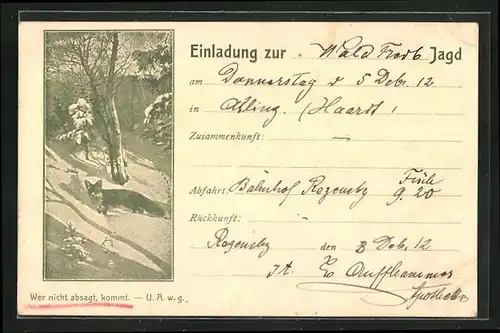 Einladung zur Wald Treib Jagd
am Donnerstag d 5 Deb. 12
in (Haardt)
Zusammenkunft: —
Abfahrt: Bahnhof Rogensby Früh 9.20
Rückkunft:
Rogensby den 3 Deb. 12
Wer nicht absagt, kommt. — U. A. w. g.